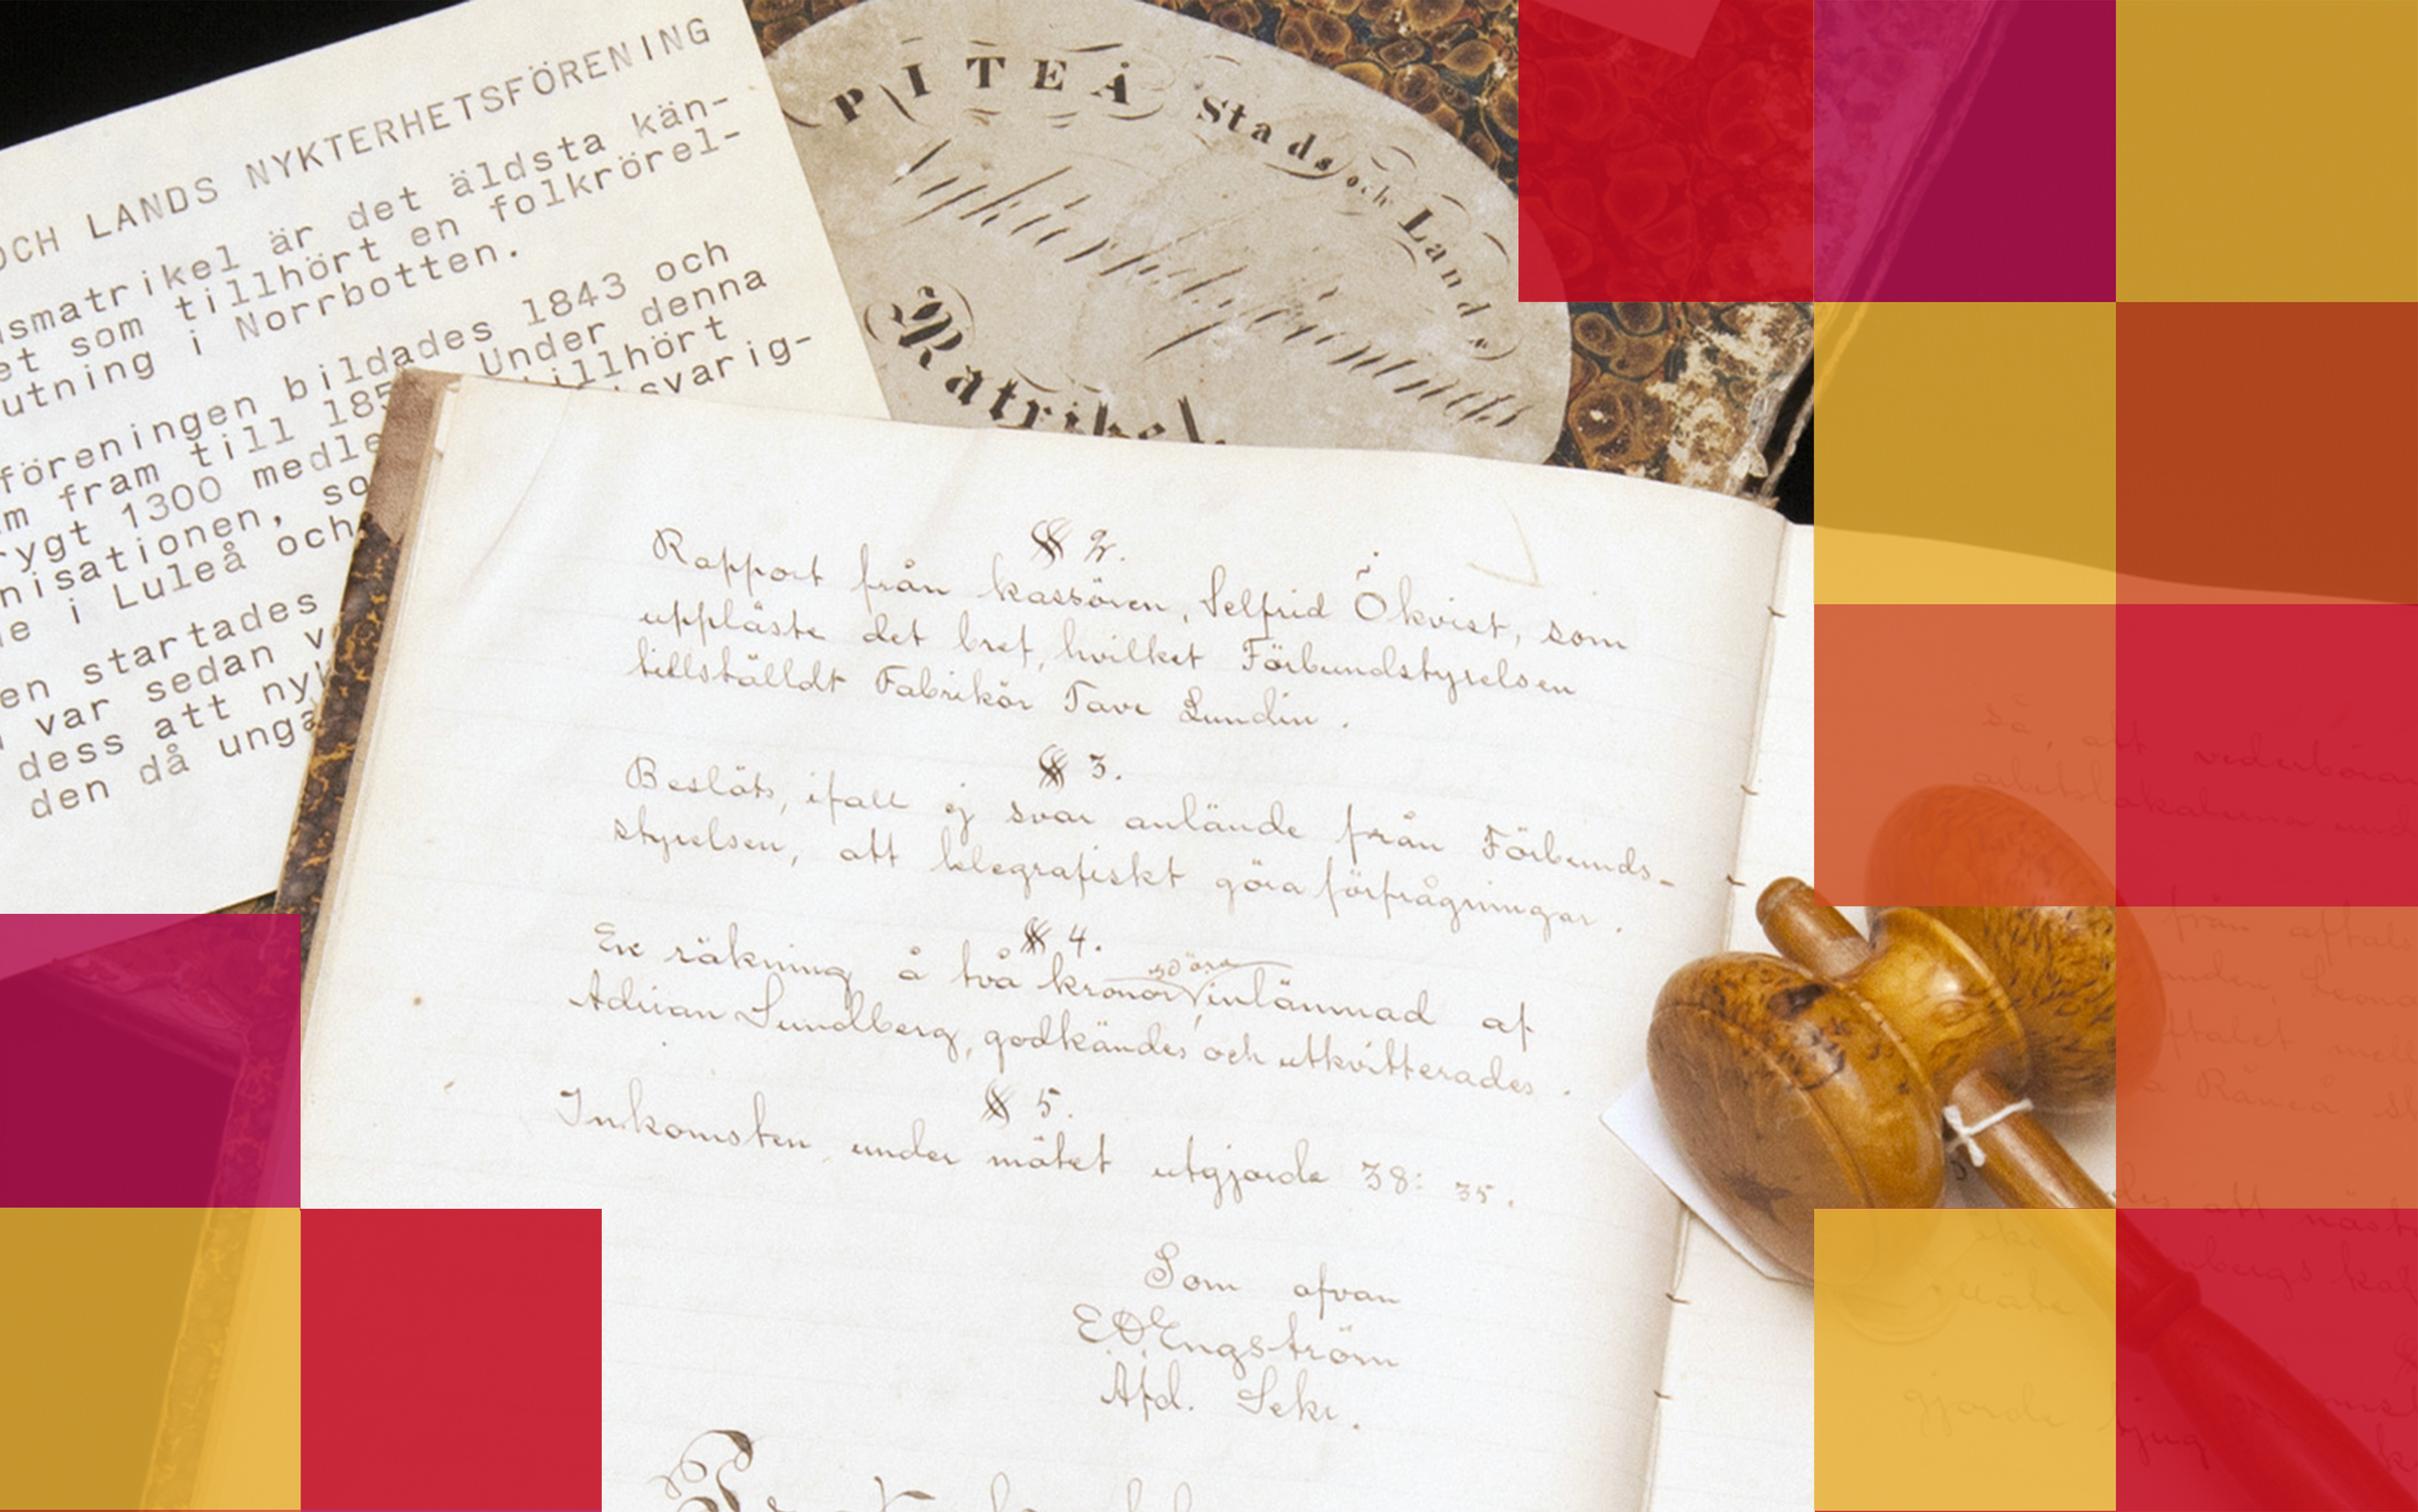 OCH LANDS NYKTERHETSFÖRENING
smatrikel är det äldsta kän-
et som tillhört en folkrörel-
utning i Norrbotten.
föreningen bildades 1843 och
m fram till 185 Under denna
rygt 1300 medle tillhört
nisationen, so svarig-
e i Luleå och
en startades
var sedan v
dess att nyk
den då unga
PITEÅ Stads och Lands
Nykterhetsförenings
Matrikel.
§ 2.
Rapport från kassören, Selfrid Ökvist, som
uppläste det bref, hvilket Förbundstyrelsen
tillställdt Fabrikör Tave Lundin.
§ 3.
Beslöts, ifall ej svar anlände från Förbunds-
styrelsen, att telegrafiskt göra förfrågningar.
§ 4.
En räkning å två kronor 50 öre inlämnad af
Adrian Lundberg, godkändes och utkvitterades.
§ 5.
Inkomsten under mötet utgjorde 38: 35.
Som ofvan
E.O. Engström
Afd. Sekr.
så, att vederböran
arbetslokalerna und
från aftals
aftalet mell
Råneå
att näst
gjorde